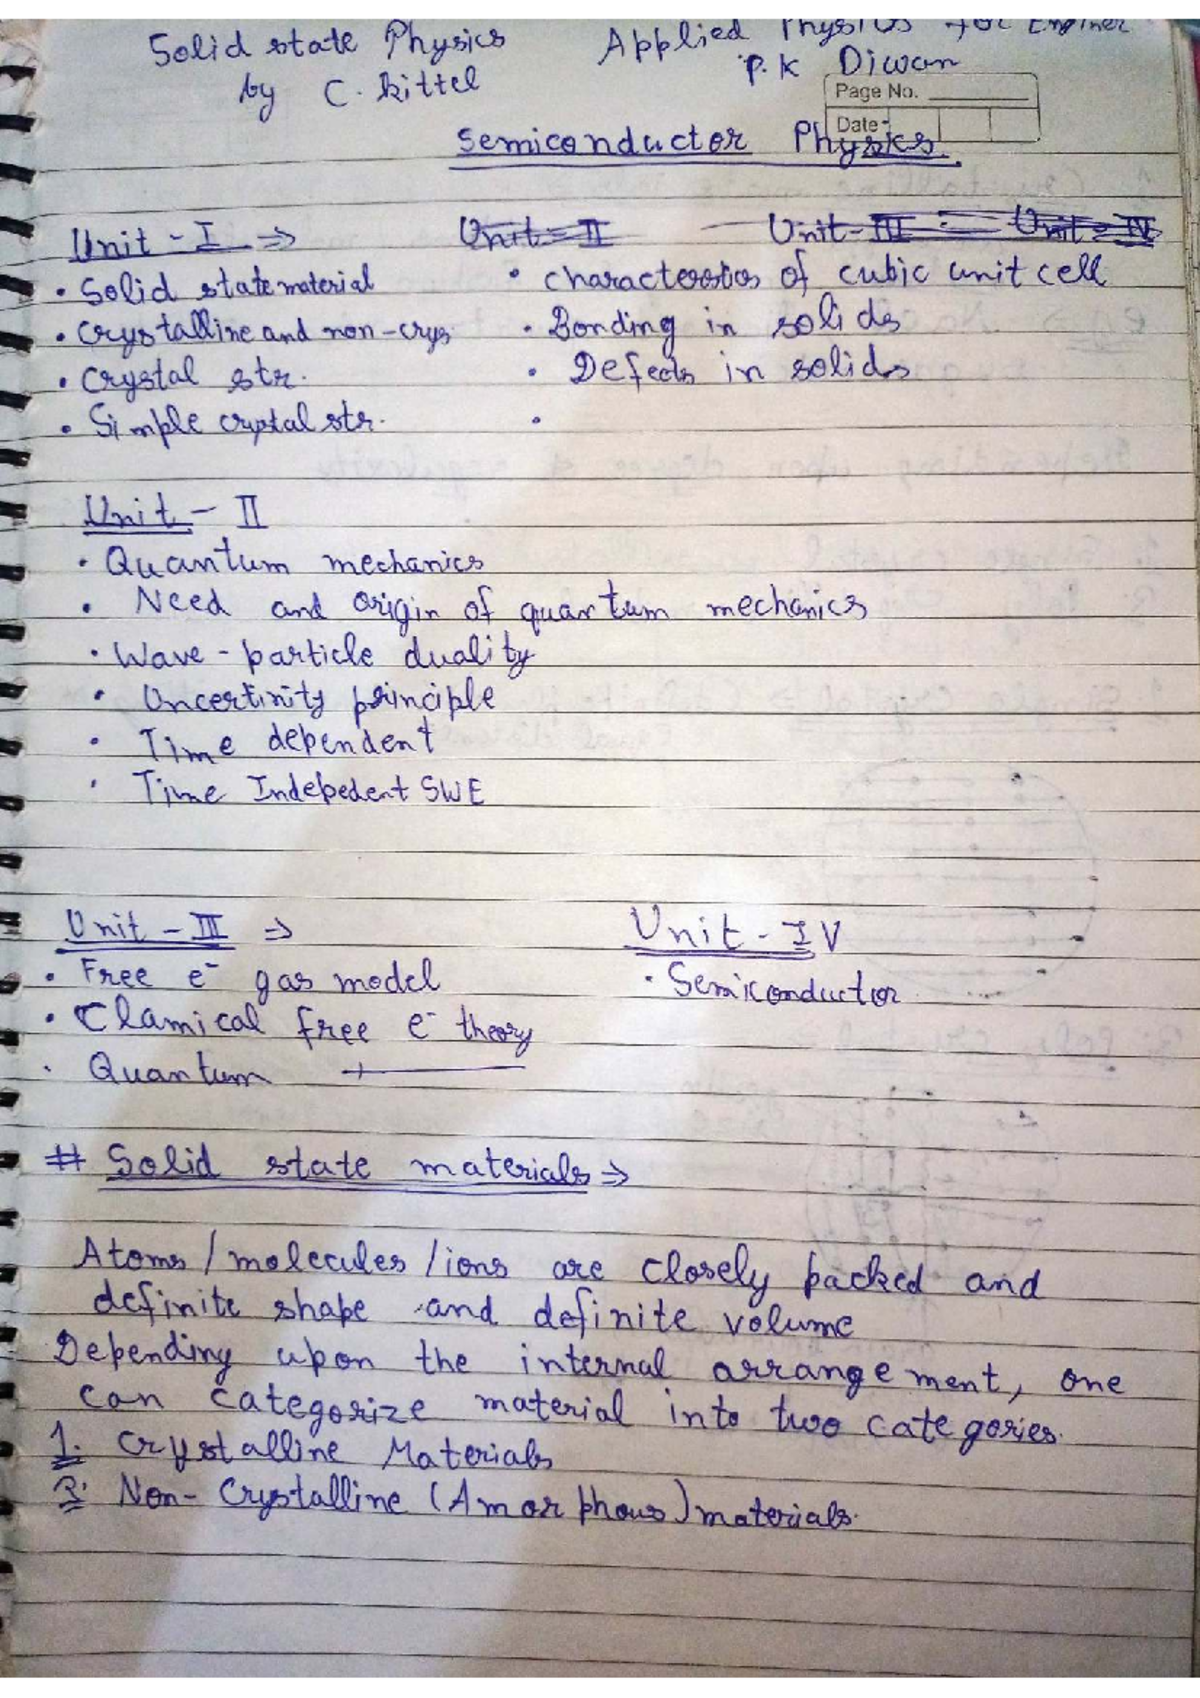 Solid state Physics
by C. Kittel
Applied Physics for Enginer
P.K Diwan
Page No.
Date
Semiconductor Physics
Unit - I ⇒
Unit - II
Unit - III
Unit - IV
• Solid state material
• Crystalline and non-crys.
• Crystal str.
• Simple cryptal str.
• characterstics of cubic unit cell
• Bonding in solids
• Defects in solids
•
Unit - II
• Quantum mechanics
• Need and origin of quantum mechanics
• Wave - particle duality
• Uncertinity principle
• Time dependent
• Time Indepedent SWE
Unit - III ⇒
• Free e⁻ gas model
• Clamical free e⁻ theory
• Quantum
Unit - IV
• Semiconductor
# Solid state materials ⇒
Atoms / molecules / ions are closely packed and
definite shape and definite volume
Depending upon the internal arrangement, one
can categorize material into two categories.
1. Crystalline Materials
2. Non- Crystalline (Amorphous) materials.